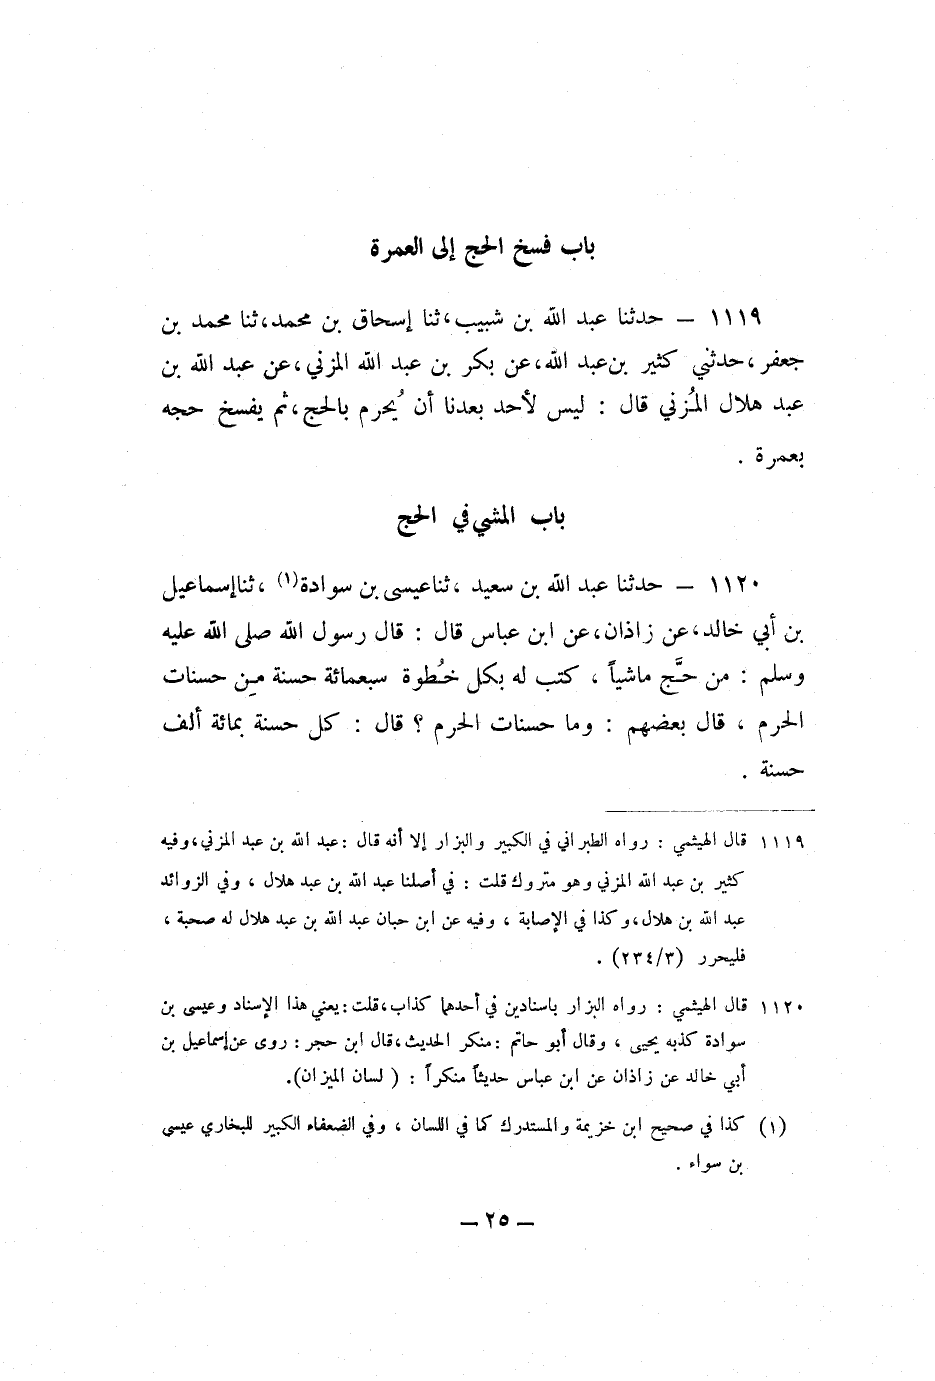 باب فسخ الحج إلى العمرة
١١١٩ – حدثنا عبد الله بن شبيب، ثنا إسحاق بن محمد، ثنا محمد بن
جعفر، حدثني كثير بن عبد الله، عن بكر بن عبد الله المزني، عن عبد الله بن
عبد هلال المُزني قال : ليس لأحد بعدنا أن يُحرم بالحج، ثم يفسخ حجه
بعمرة .
باب المشي في الحج
١١٢٠ – حدثنا عبد الله بن سعيد ، ثنا عيسى بن سوادة(١) ، ثنا إسماعيل
بن أبي خالد، عن زاذان، عن ابن عباس قال : قال رسول الله صلى الله عليه
وسلم : من حجَّ ماشياً ، كتب له بكل خُطوة سبعمائة حسنة مِن حسنات
الحرم ، قال بعضهم : وما حسنات الحرم ؟ قال : كل حسنة بمائة ألف
حسنة .
١١١٩ قال الهيثمي : رواه الطبراني في الكبير والبزار إلا أنه قال : عبد الله بن عبد المزني، وفيه
كثير بن عبد الله المزني وهو متروك قلت : في أصلنا عبد الله بن عبد هلال ، وفي الزوائد
عبد الله بن هلال، وكذا في الإصابة ، وفيه عن ابن حبان عبد الله بن عبد هلال له صحبة ،
فليحرر (٢٣٤/٣) .
١١٢٠ قال الهيثمي : رواه البزار باسنادين في أحدهما كذاب، قلت : يعني هذا الإسناد وعيسى بن
سوادة كذبه يحيى ، وقال أبو حاتم : منكر الحديث، قال ابن حجر : روى عن إسماعيل بن
أبي خالد عن زاذان عن ابن عباس حديثاً منكراً : ( لسان الميزان).
(١) كذا في صحيح ابن خزيمة والمستدرك كما في اللسان ، وفي الضعفاء الكبير للبخاري عيسي
بن سواء .
– ٢٥ –